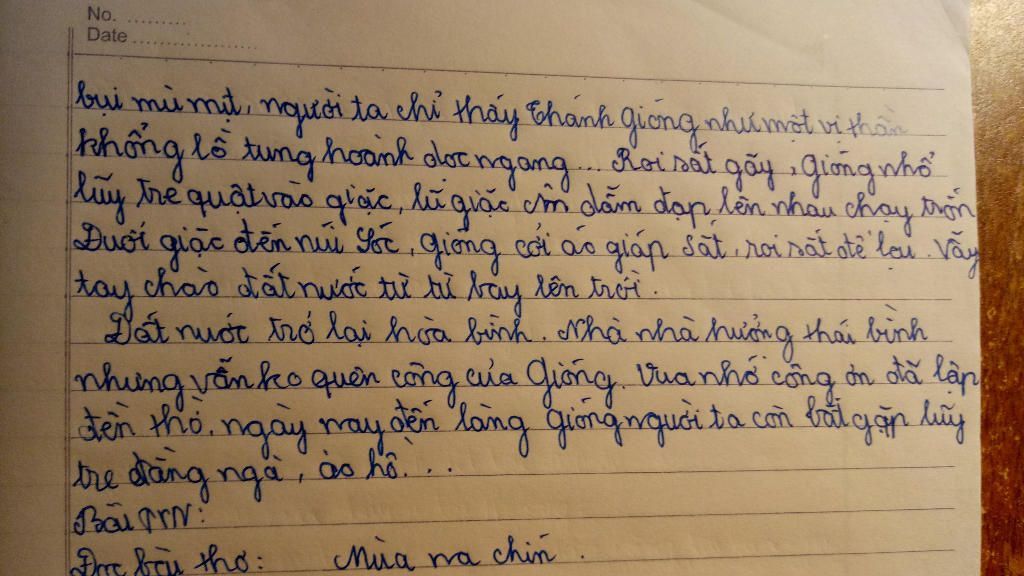 No. .........
Date ...................
bụi mù mịt, người ta chỉ thấy Thánh Gióng như một vị thần
khổng lồ tung hoành dọc ngang... Roi sắt gãy, Gióng nhổ
lũy tre quật vào giặc, lũ giặc ôm dẫm đạp lên nhau chạy trốn
Đuổi giặc đến núi Sóc, Gióng cởi áo giáp sắt, roi sắt để lại. Vẫy
tay chào đất nước từ từ bay lên trời.
Đất nước trở lại hòa bình. Nhà nhà hưởng thái bình
nhưng vẫn ko quên công của Gióng. Vua nhớ công ơn đã lập
đền thờ. ngày nay đến làng Gióng người ta còn bắt gặp lũy
tre đằng ngà, ao hồ...
Bài TN:
Đọc bài thơ: Mùa na chín.